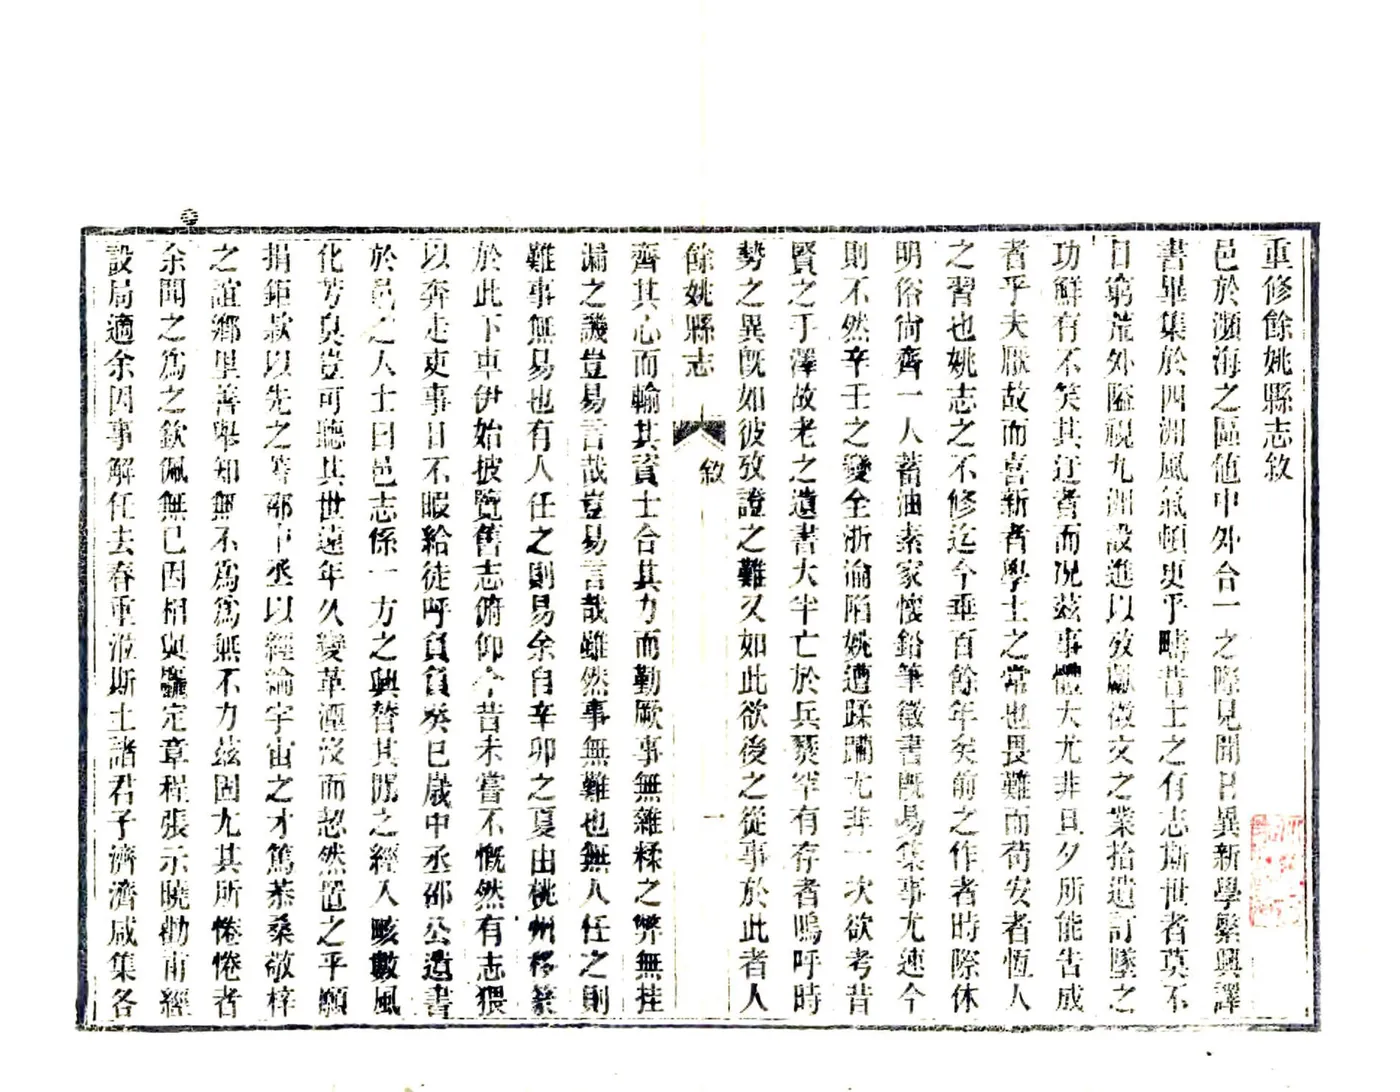 重修餘姚縣志敘
邑於瀕海之區値中外合一之際見聞日異新學繁興譯
書畢集於四洲風氣頓更乎疇昔士之有志斯世者莫不
日窮荒外隘視九洲設進以攷獻徵文之業拾遺訂墜之
功鮮有不笑其迂者而况兹事體大尤非旦夕所能告成
者乎夫厭故而喜新者學士之常也畏難而苟安者恆人
之習也姚志之不修迄今垂百餘年矣前之作者時際休
明俗尙齊一人蓄油素家懷鉛筆徵書旣易集事尤速今
則不然辛壬之變全浙淪陷姚遭蹂躪尤非一次欲考昔
賢之手澤故老之遺書大半亡於兵燹罕有存者嗚呼時
勢之異旣如彼攷證之難又如此欲後之從事於此者人
餘姚縣志
敘
一
齊其心而輸其資士合其力而勤厥事無雜糅之弊無挂
漏之譏豈易言哉豈易言哉雖然事無難也無人任之則
難事無易也有人任之則易余自辛卯之夏由桃州移篆
於此下車伊始披覽舊志俯仰今昔未嘗不慨然有志猥
以奔走吏事日不暇給徒呼負負癸巳歲中丞邵公遺書
於邑之人士曰邑志係一方之興替其閒之經人畯數風
化芳臭豈可聽其世遠年久變革湮沒而恝然置之乎願
捐鉅款以先之等邵中丞以經論宇宙之才篤恭桑敬梓
之誼鄉里善舉知無不爲爲無不力兹固尤其所惓惓者
余聞之爲之欽佩無已因相與籌定章程張示曉勸甫經
設局適余因事解任去春重涖斯土諸君子濟濟咸集各